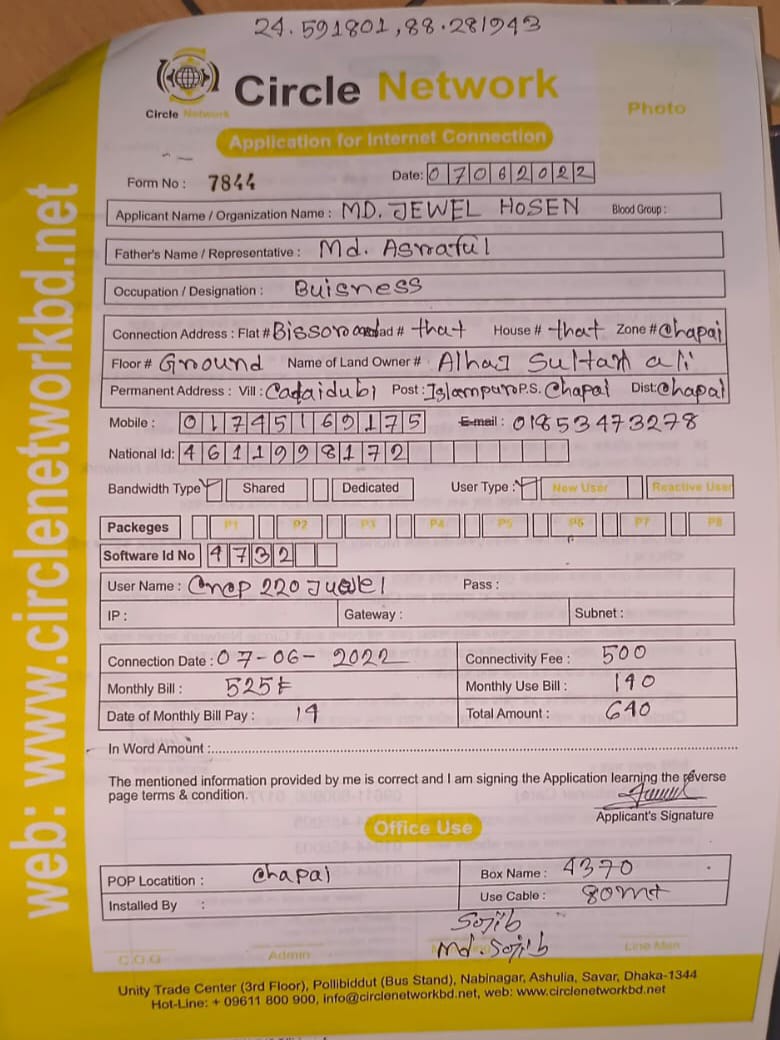 24.591801,88.281943
Circle Network
Circle Network
Photo
Application for Internet Connection
Form No : 7844 Date: 07062022
Applicant Name / Organization Name : MD. JEWEL HOSEN Blood Group :
Father's Name / Representative : Md. Asraful
Occupation / Designation : Buisness
Connection Address : Flat # Bissoro ad # that House # that Zone # Chapai
Floor # Ground Name of Land Owner # Alhaj Sultan ali
Permanent Address : Vill : Post : Islampur P.S. Chapai Dist: Chapai
Mobile : 01745169175 E-mail : 01853473278
National Id: 4611998172
Bandwidth Type Shared Dedicated User Type : New User Reactive User
Packeges P1 P2 P3 P4 P5 P6 P7 P8
Software Id No 4732
User Name : Cncp 220 Juwel Pass :
IP : Gateway : Subnet :
Connection Date : 07-06-2022 Connectivity Fee : 500
Monthly Bill : 525৳ Monthly Use Bill : 140
Date of Monthly Bill Pay : 14 Total Amount : 640
In Word Amount :
The mentioned information provided by me is correct and I am signing the Application learning the reverse
page terms & condition.
Applicant's Signature
Office Use
POP Locatition : Chapai Box Name : 4370
Installed By : Use Cable : 80mt
Sojib
Md. Sojib
C.O.O Admin Line Man
Unity Trade Center (3rd Floor), Pollibiddut (Bus Stand), Nabinagar, Ashulia, Savar, Dhaka-1344
Hot-Line: + 09611 800 900, info@circlenetworkbd.net, web: www.circlenetworkbd.net
web: www.circlenetworkbd.net